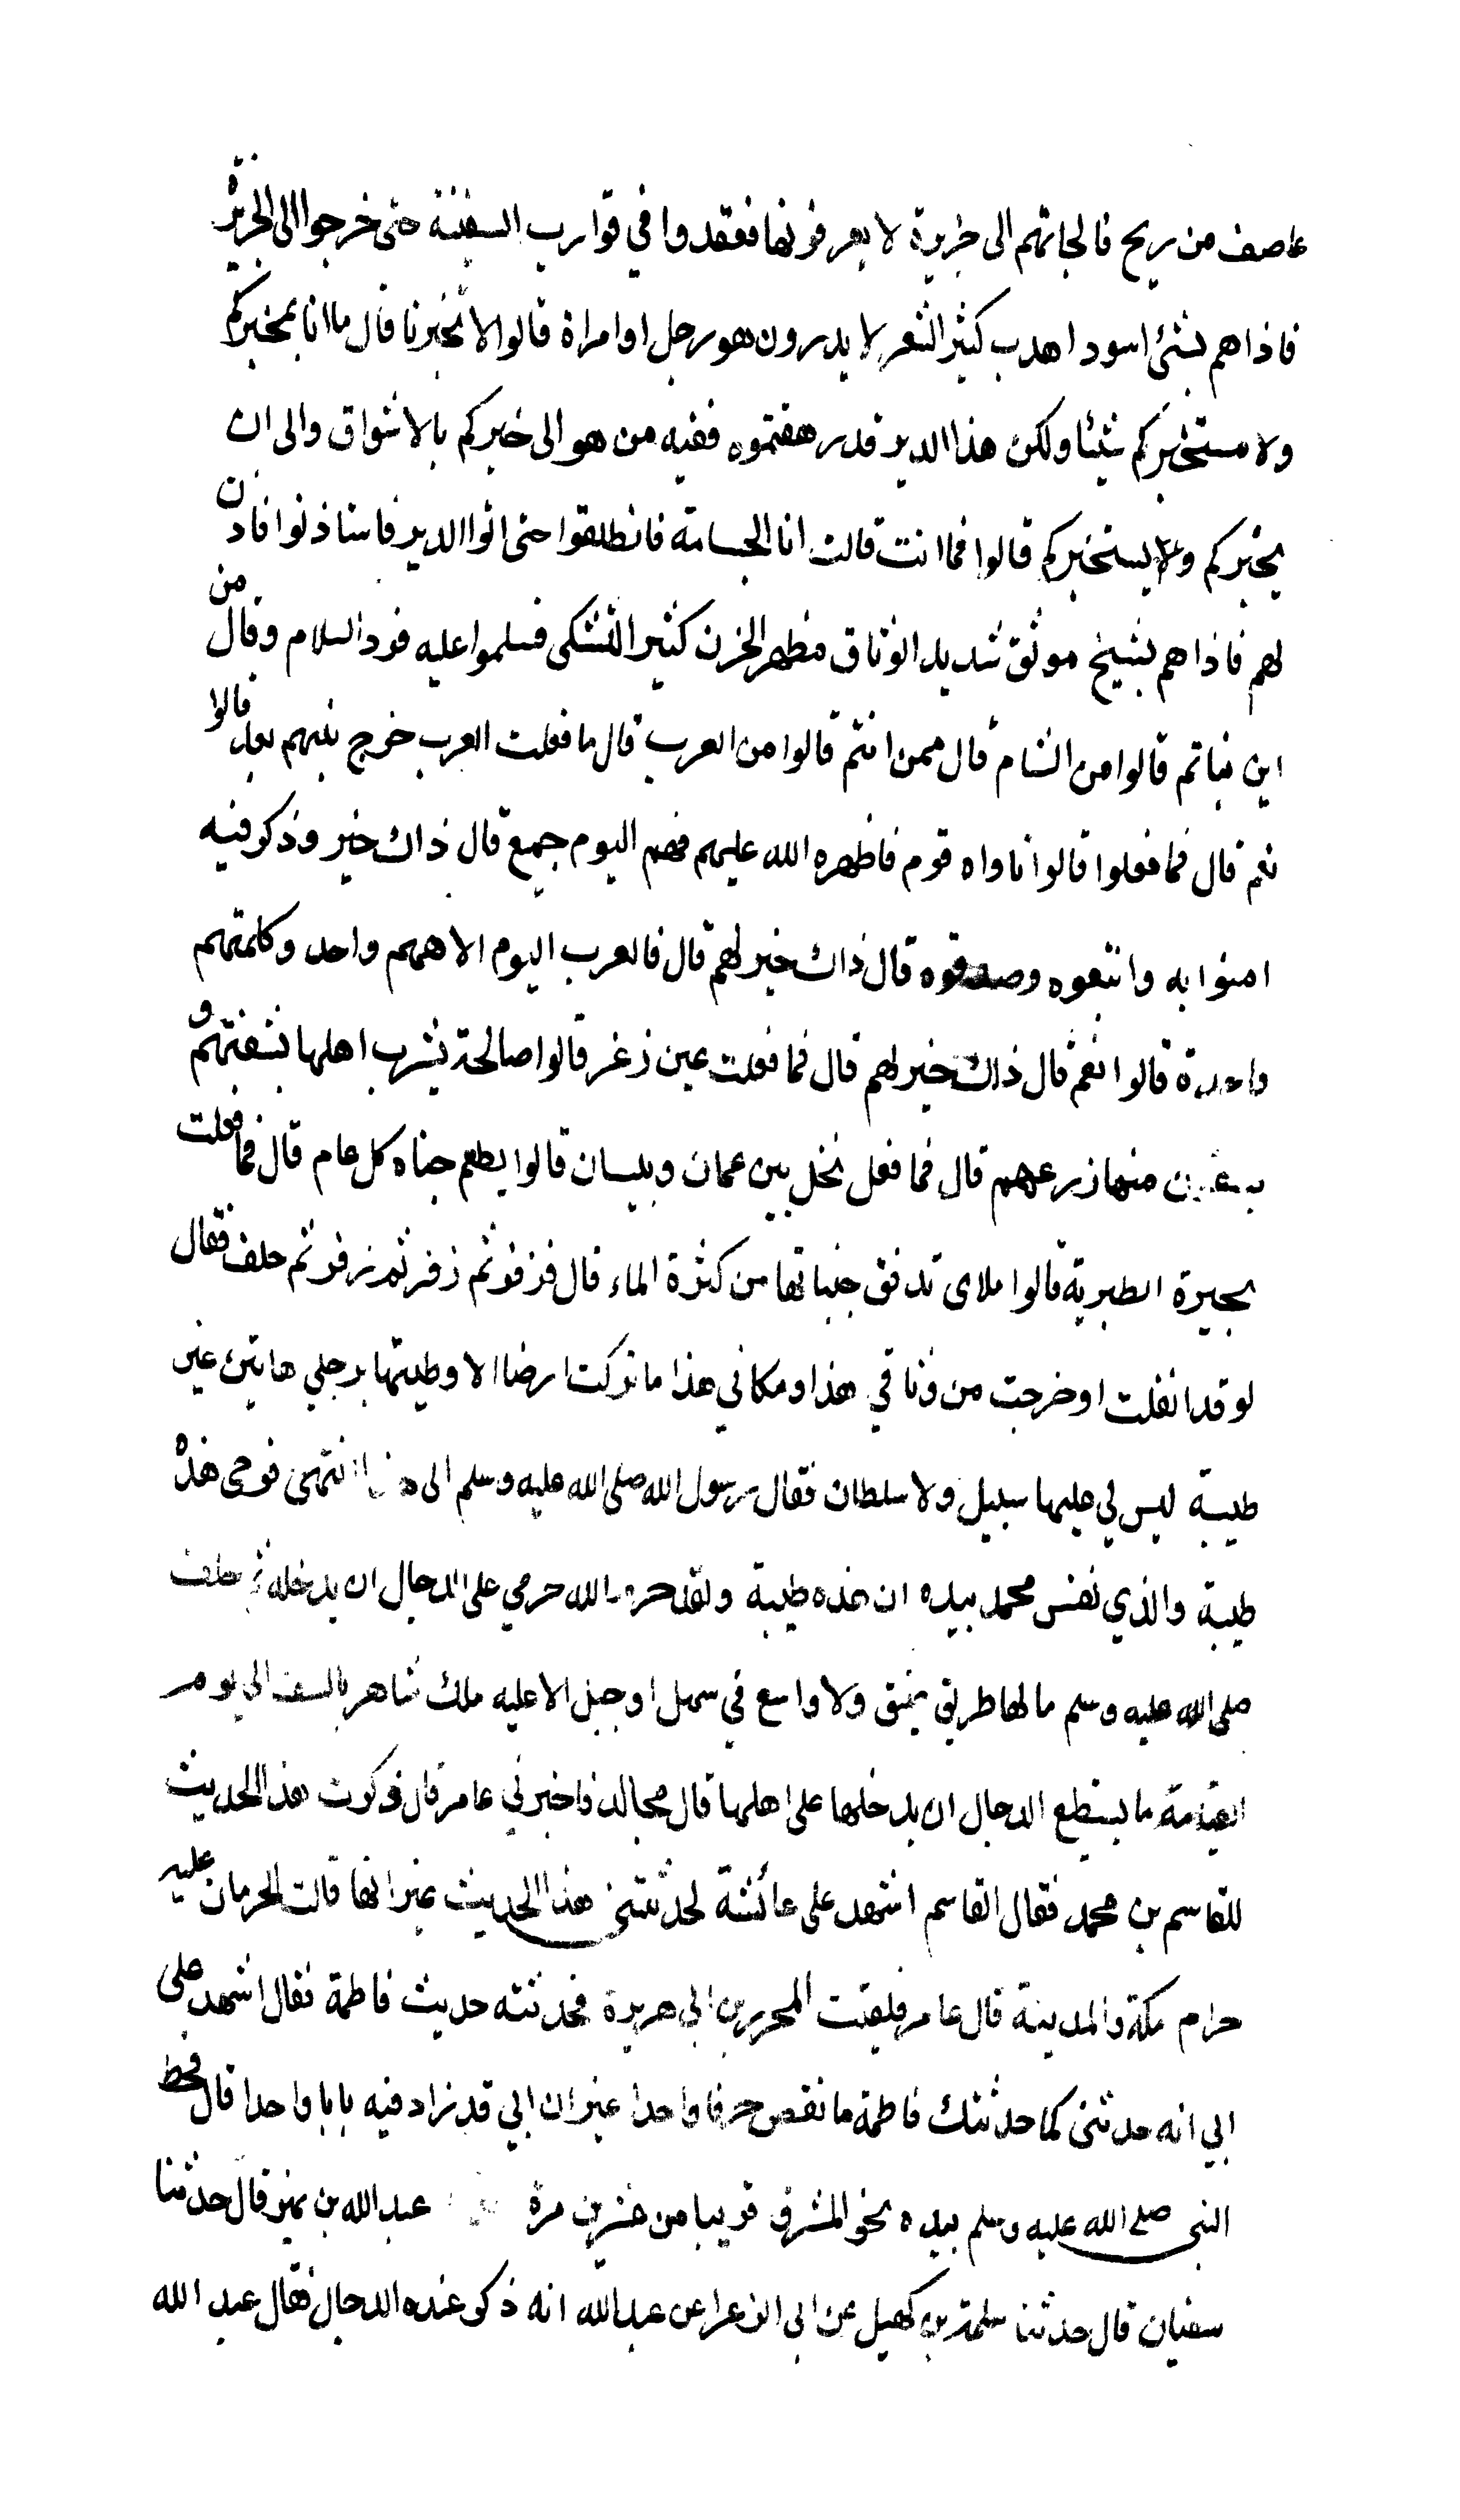 عاصف من ريح فالجاتهم الى جزيرة لا يعرفونها فقعدوا في قوارب السفينة حتى خرجوا الى الجزيرة
فاذاهم بشئ اسود اهدب كثير الشعر لا يدرون هو رجل او امراة قالوا الا تخبرنا قال ما انا بمخبركم
ولا مستخبركم شيئا ولكن هذا الدير قد رهقتموه ففيه من هو الى خبركم بالاشواق والى ان
يخبركم ويستخبركم قالوا فما انت قالت انا الجساسة فانطلقوا حتى اتوا الدير فاستاذنوا فاذن
لهم فاذاهم بشيخ موثق شديد الوثاق مظهر الحزن كثير التشكى فسلموا عليه فرد السلام وقال من
اين نباتم قالوا من الشام قال ممن انتم قالوا من العرب قال ما فعلت العرب خرج نبيهم بعد قالوا
نعم قال فما فعلوا قالوا ناواه قوم فاظهره الله عليهم فهم اليوم جميع قال ذاك خير وذكر فيه
امنوا به واتبعوه وصدقوه قال ذاك خير لهم قال فالعرب اليوم الاههم واحد وكلمتهم
واحدة قالوا نعم قال ذاك خير لهم قال فما فعلت عين زغر قالوا صالحة يشرب اهلها بشفتهم و
يسقون منها زرعهم قال فما فعل نخل بين عمان وبيسان قالوا يطعم جناه كل عام قال فما فعلت
بحيرة الطبرية قالوا ملاى تدفق جنباتها من كثرة الماء قال فزفر ثم زفر ثم زفر ثم حلف فقال
لو قد انفلت او خرجت من وثاقي هذا ومكاني هذا ما تركت ارضا الا وطيتها برجلي هاتين غير
طيبة ليس لي عليها سبيل ولا سلطان فقال رسول الله صلى الله عليه وسلم الى هذا انتهى فرحى هذه
طيبة والذي نفس محمد بيده ان هذه طيبة ولقد حرم الله حرمي على الدجال ان يدخله ثم حلف
صلى الله عليه وسلم مالها طريق ضيق ولا واسع في سهل او جبل الا عليه ملك شاهر بالسيف الى يوم
القيامة ما يستطيع الدجال ان يدخلها على اهلها قال مجالد فاخبرني عامر قال ذكرت هذا الحديث
للقاسم بن محمد فقال القاسم اشهد على عائشة لحدثتني هذا الحديث غير انها قالت الحرمان عليه
حرام مكة والمدينة قال عامر فلقيت المحرر بن ابي هريرة فحدثته حديث فاطمة فقال اشهد على
ابي انه حدثني كما حدثتك فاطمة ما نقص حرفا واحدا غير ان ابي قد زاد فيه بابا واحدا قال فحط
النبي صلى الله عليه وسلم بيده نحو المشرق قريبا من عشرين مرة عبد الله بن نمير قال حدثنا
سفيان قال حدثنا سلمة بن كهيل عن ابى الزعرا عن عبد الله انه ذكر عنده الدجال فقال عبد الله